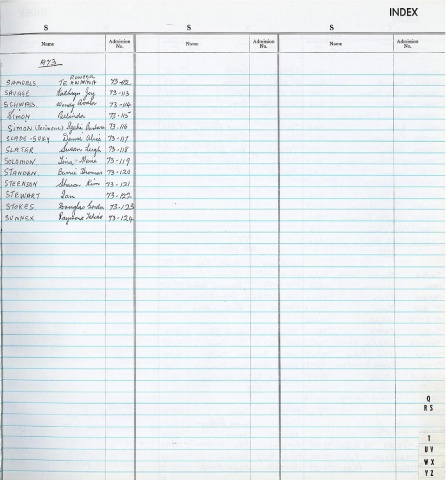 INDEX
S S S
Name Admission No. Name Admission No. Name Admission No.
1973
SAMUELS TE 73-112
SAVAGE Kathryn Joy 73-113
SCHWASS Wendy 73-114
SIMON Belinda 73-115
SIMON Barbara 73-116
SLADE-SULY 73-117
SLATER Susan Leigh 73-118
SOLOMON Tina-Marie 73-119
STANDEN Thomas 73-120
STEENSON Sharon Kim 73-121
STEWART Ian 73-122
STOKES Douglas Gordon 73-123
SUNNEX Raymond 73-124
Q
R S
T
U V
W X
Y Z